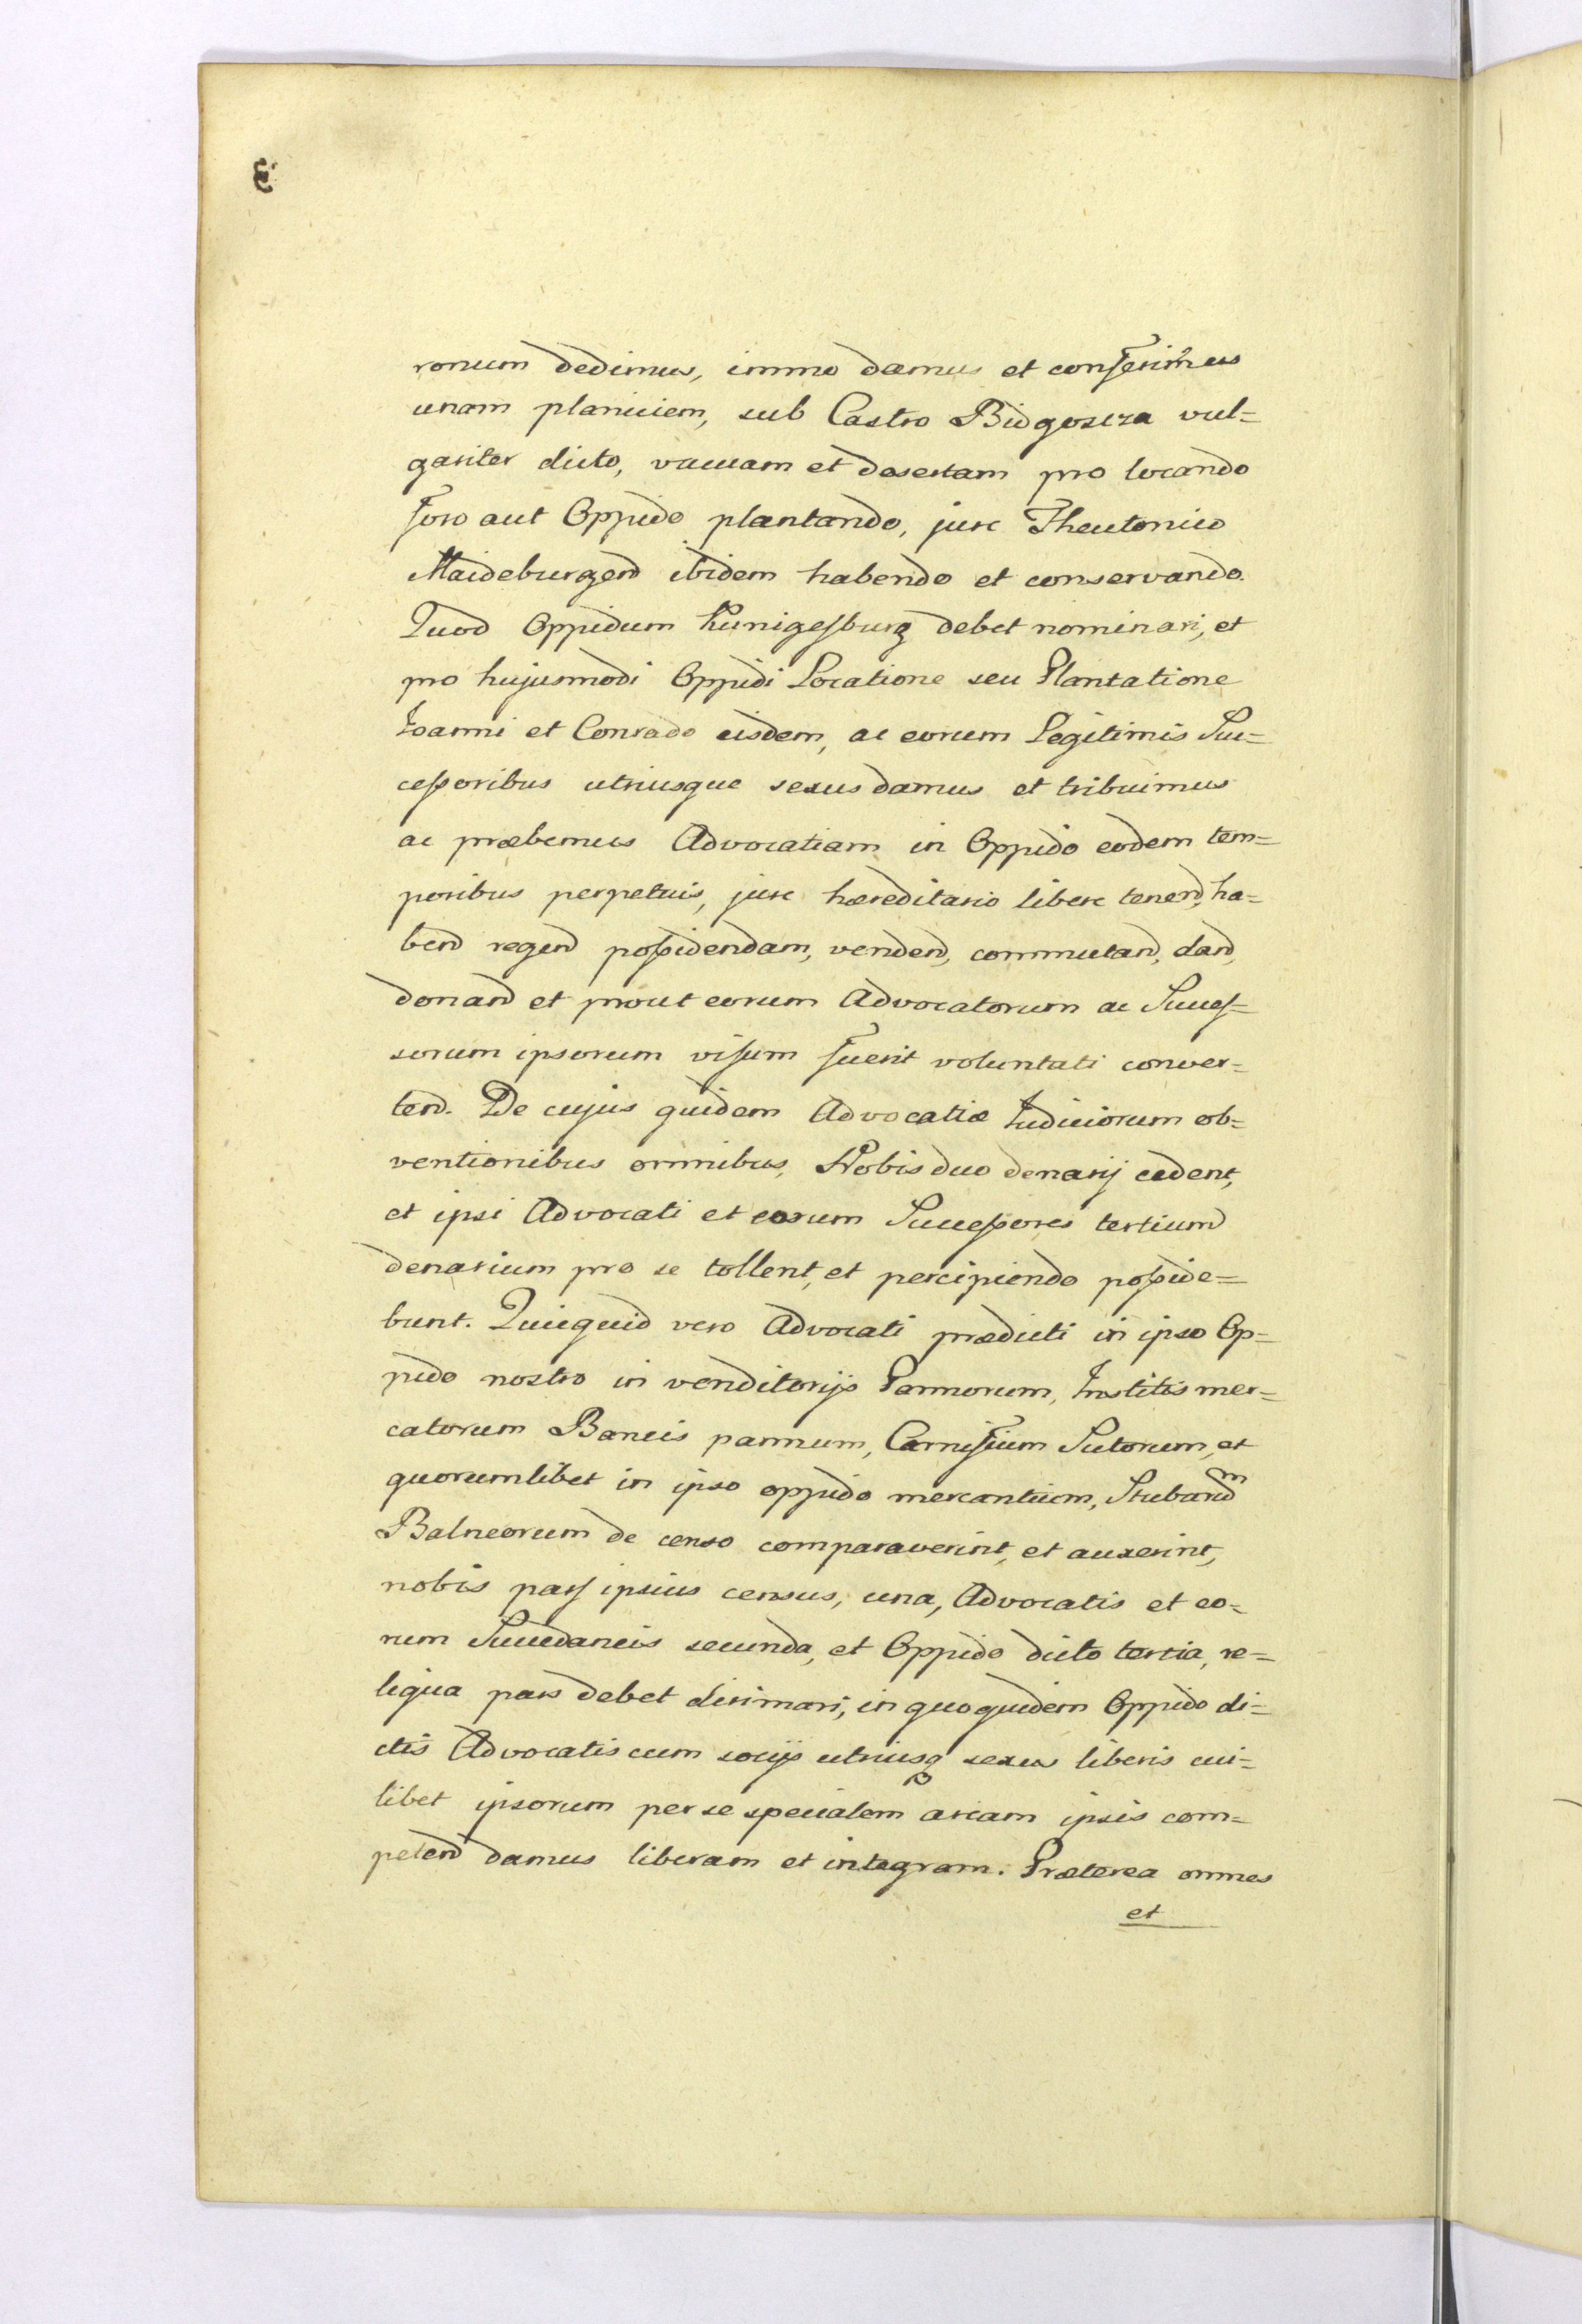 3
ronum dedimus, immo damus et conferimus
unam planiciem, sub Castro Bidgoszza vul=
gariter dicto, vacuam et desertam pro locando
foro aut Oppido plantando, jure Theutonico
Maideburgend ibidem habendo et conservando.
Quod Oppidum Kunigesburg debet nominari, et
pro hujusmodi Oppidi Locatione seu Plantatione
Joanni et Conrado eisdem, ac eorum Legitimis Suc=
cessoribus utriusque sexus damus et tribuimus
ac præbemus Advocatiam in Oppido eodem tem=
poribus perpetuis, jure hæreditario libere tenend, ha=
bend regend possidendam, vendend, commutand, dand,
donand et prout eorum Advocatorum ac Succes=
sorum ipsorum visum fuerit voluntati conver=
tend. De cujus quidem Advocatiæ Judiciorum ob=
ventionibus omnibus, Nobis duo denarij cedent,
et ipsi Advocati et eorum Successores tertium
denarium pro se tollent, et percipiendo posside=
bunt. Quicquid vero Advocati prædicti in ipso Op=
pido nostro in venditorijs Pannorum, Institis mer=
catorum Bancis pannum, Carnificum Sutorum, et
quorumlibet in ipso oppido mercantium, Stubarum
Balneorum de censo comparaverint, et auxerint,
nobis pars ipsius census, una, Advocatis et eo=
rum Succedaneis secunda, et Oppido dicto tertia, re=
liqua pars debet dirimari, in quo quidem Oppido di=
ctis Advocatis cum socijs utriusq sexus liberis cui=
libet ipsorum per se specialem aream ipsis com=
petend damus liberam et integram. Præterea omnes
et